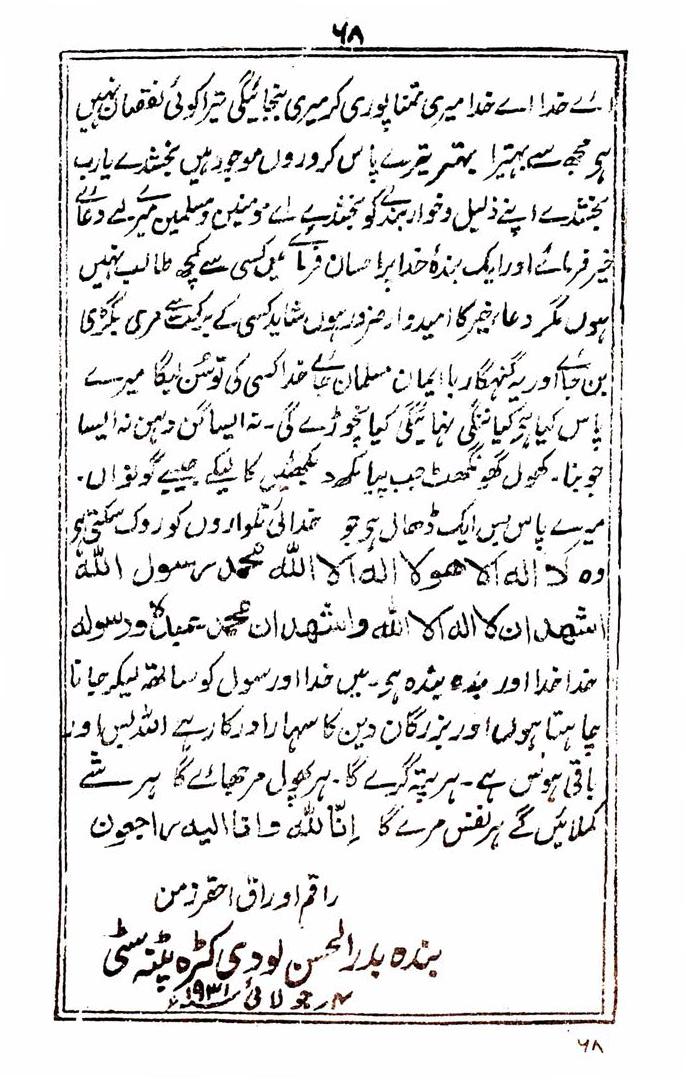 ۶۸
اے خدا اے خدا میری تمنا پوری کر میری بنجائیگی تیرا کوئی نقصان نہیں
ہو مجھ سے بہتیرا بہتر تیرے پاس کروروں موجود ہیں بخشدے یارب
بخشدے اپنے ذلیل و خوار بندے کو بخشدے اے مومنین و مسلمین میرے لے دعائے
خیر فرمائے اور ایک بندۂ خدا پر احسان فرمائے میں کسی سے کچھ طالب نہیں
ہوں مگر دعاء خیر کا امیدوار ضرور ہوں شاید کسی کے برکت سے مری بگڑی
بن جائے اور یہ گنہگار باایمان مسلمان جائے خدا کسی کی تو سن لیگا میرے
پاس کیا ہے کیا ننگی نہائیگی کیا نچوڑے گی۔ نہ ایسا گن دہن نہ ایسا
جوبنا۔ کھول گھونگھٹ جب پیا مکھ دیکھئیں کا لیکے جیبے گوئواں۔
میرے پاس بس ایک ڈھال ہو جو خدائی تلواروں کو روک سکتی ہو
وہ لا الہ الا ھو لا الہ الا اللہ محمد رسول اللہ
اشھد ان لا الہ الا اللہ واشھد ان محمد عبدہ ورسولہ
خدا خدا اور بندہ بندہ ہو۔ میں خدا اور رسول کو ساتھ لیکر جانا
چاہتا ہوں اور بزرگان دین کا سہارا درکار ہے اللہ بس اور
باقی ہوس ہے۔ ہر پتہ گرے گا۔ ہر پھول مرجھائے گا ہر شے
کملائیں گے ہر نفس مرے گا اِنّا للہ وانا الیہ راجعون
راقم اوراق احقر زمن
بندہ بدر الحسن لودی کٹرہ پٹنہ سٹی
جولائی ۱۹۳۱ء
۶۸